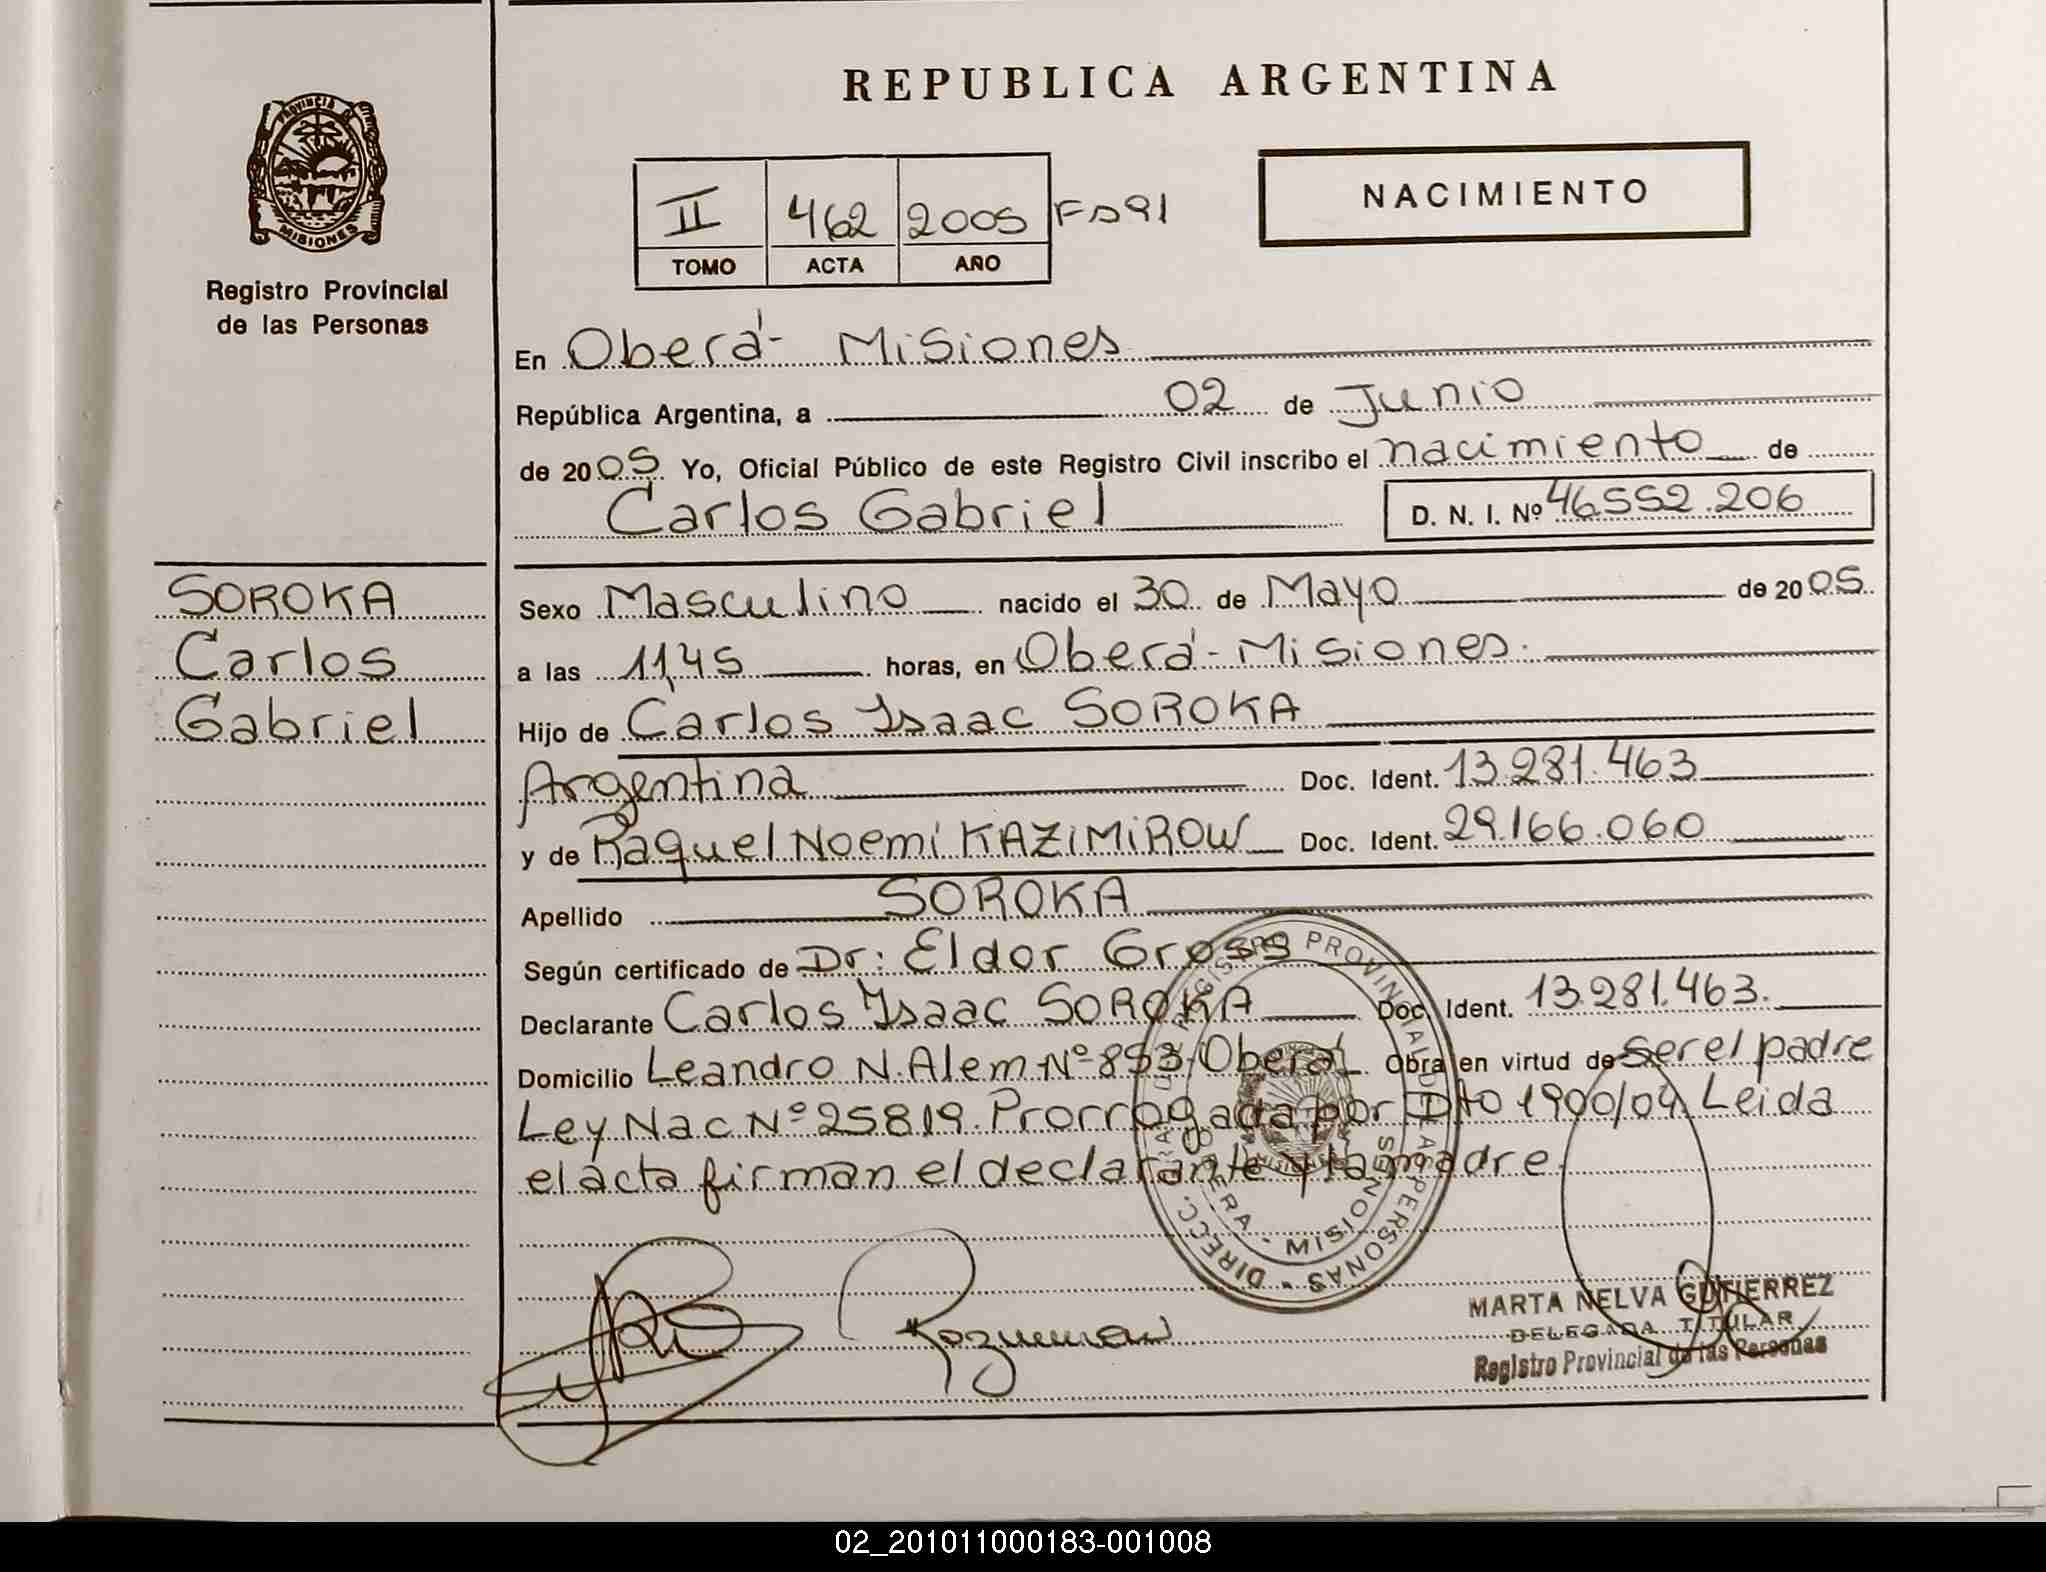 REPUBLICA ARGENTINA
PROVINCIA DE
MISIONES
Registro Provincial
de las Personas
II 462 2005 Fº 91
TOMO ACTA AÑO
NACIMIENTO
En Oberá - Misiones
República Argentina, a 02 de Junio
de 2005 Yo, Oficial Público de este Registro Civil inscribo el nacimiento de
Carlos Gabriel D. N. I. Nº 46.552.206
SOROKA
Carlos
Gabriel
Sexo Masculino nacido el 30 de Mayo de 2005
a las 11,45 horas, en Oberá - Misiones.
Hijo de Carlos Isaac SOROKA
Argentina Doc. Ident. 13.281.463
y de Raquel Noemí KAZIMIROW Doc. Ident. 29.166.060
Apellido SOROKA
Según certificado de Dr: Eldor Gross
Declarante Carlos Isaac SOROKA Doc. Ident. 13.281.463.
Domicilio Leandro N. Alem Nº 853 - Oberá Obra en virtud de ser el padre
Ley Nac Nº 25819. Prorrogada por Dto 1900/04 Leida
el acta firman el declarante y la madre.
MISIONES
MARTA NELVA GUTIERREZ
DELEGADA TITULAR
Registro Provincial de las Personas
02_201011000183-001008